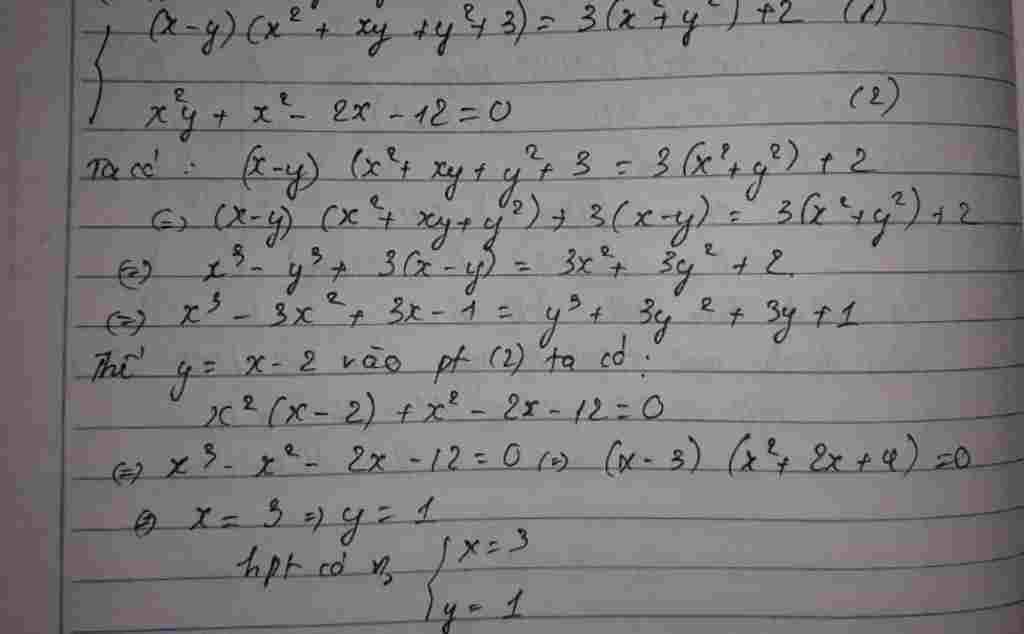 (x-y)(x² + xy + y² + 3) = 3(x² + y²) + 2 (1)
x²y + x² - 2x - 12 = 0 (2)
Ta có : (x-y) (x² + xy + y² + 3 = 3(x² + y²) + 2
(=) (x-y) (x² + xy + y²) + 3(x-y) = 3(x² + y²) + 2
(=) x³ - y³ + 3(x - y) = 3x² + 3y² + 2.
(=) x³ - 3x² + 3x - 1 = y³ + 3y² + 3y + 1
Thế y = x - 2 vào pt (2) ta có :
x² (x - 2) + x² - 2x - 12 = 0
(=) x³ - x² - 2x - 12 = 0 (=) (x - 3) (x² + 2x + 4) = 0
(=) x = 3 => y = 1
hpt có n₀ x = 3
y = 1